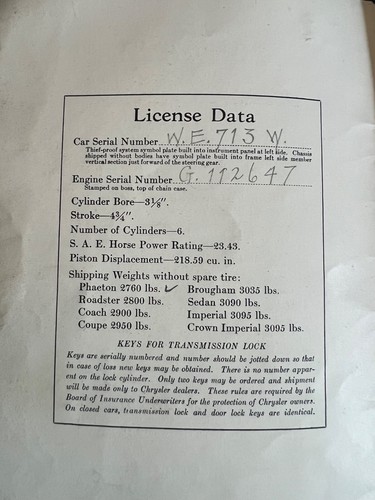 License Data
Car Serial Number W.E. 713 W.
Thief-proof system symbol plate built into instrument panel at left side. Chassis
shipped without bodies have symbol plate built into frame left side member
vertical section just forward of the steering gear.
Engine Serial Number G. 112647
Stamped on boss, top of chain case.
Cylinder Bore—3⅛".
Stroke—4¾".
Number of Cylinders—6.
S. A. E. Horse Power Rating—23.43.
Piston Displacement—218.59 cu. in.
Shipping Weights without spare tire:
Phaeton 2760 lbs. ✓ Brougham 3035 lbs.
Roadster 2800 lbs. Sedan 3090 lbs.
Coach 2900 lbs. Imperial 3095 lbs.
Coupe 2950 lbs. Crown Imperial 3095 lbs.
KEYS FOR TRANSMISSION LOCK
Keys are serially numbered and number should be jotted down so that
in case of loss new keys may be obtained. There is no number appar-
ent on the lock cylinder. Only two keys may be ordered and shipment
will be made only to Chrysler dealers. These rules are required by the
Board of Insurance Underwriters for the protection of Chrysler owners.
On closed cars, transmission lock and door lock keys are identical.